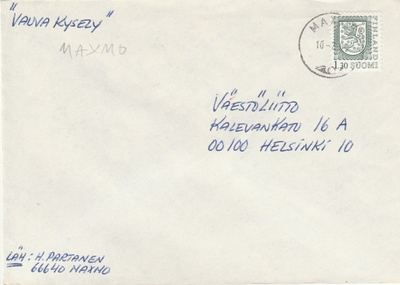 "VAUVA KYSELY"
MAXMO
MAX
FINLAND
1,30 SUOMI
VÄESTÖLIITTO
KALEVANKATU 16 A
00100 HELSINKI 10
LÄH: H. PARTANEN
66640 MAXMO